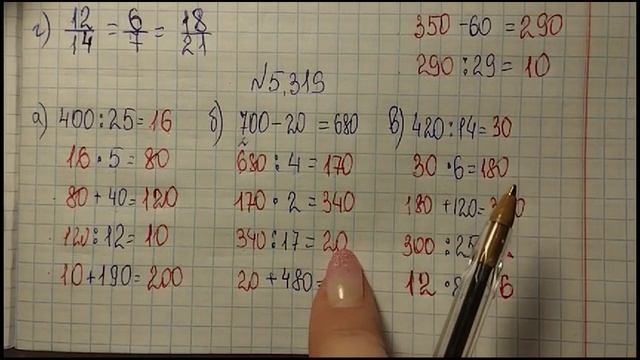 г) 12/14 = 6/7 = 18/21
350 - 60 = 290
290 : 29 = 10
№5,319
а) 400 : 25 = 16
16 · 5 = 80
80 + 40 = 120
120 : 12 = 10
10 + 190 = 200
б) 700 - 20 = 680
680 : 4 = 170
170 · 2 = 340
340 : 17 = 20
20 + 480 =
в) 420 : 14 = 30
30 · 6 = 180
180 + 120 =
300 : 25
12 ·